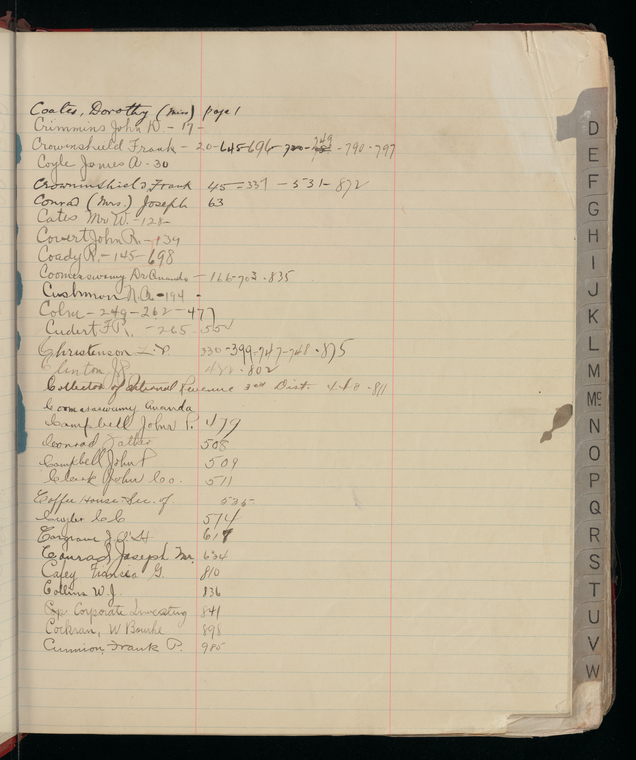 Coates, Dorothy (Miss) page 1
Crimmins John D. - 17 -
Crowninshield Frank - 20-645-696- 749 -790-797
Coyle James A - 30
Crowninshield Frank 45-337-531-872
Conrad (Mrs.) Joseph 63
Cates Mr W. - 128-
Covert John R. - 134
Coady R. - 145-698
Coomaraswamy Dr Ananda - 166-703-835
Cushman N.A. - 194 -
Colm - 249-262-477
Cudert F.R. - 265-
Christenson 330-399-747-748-875
Clinton 488-802
Collector of Internal Revenue 3rd Dist. 811
Coomaraswamy Ananda
Campbell John P. 479
Conrad Father 508
Campbell John P 509
Clark John Co. 511
Coffee House Sec. of 535
574
Cosgrave 617
Conrad, Joseph Mr. 634
Carey Francis G. 810
Collins W.J. 836
Corporate Investing 841
Cockran, W Bourke 898
Cunnion, Frank P. 985
D
E
F
G
H
I
J
K
L
M
Mc
N
O
P
Q
R
S
T
U
V
W